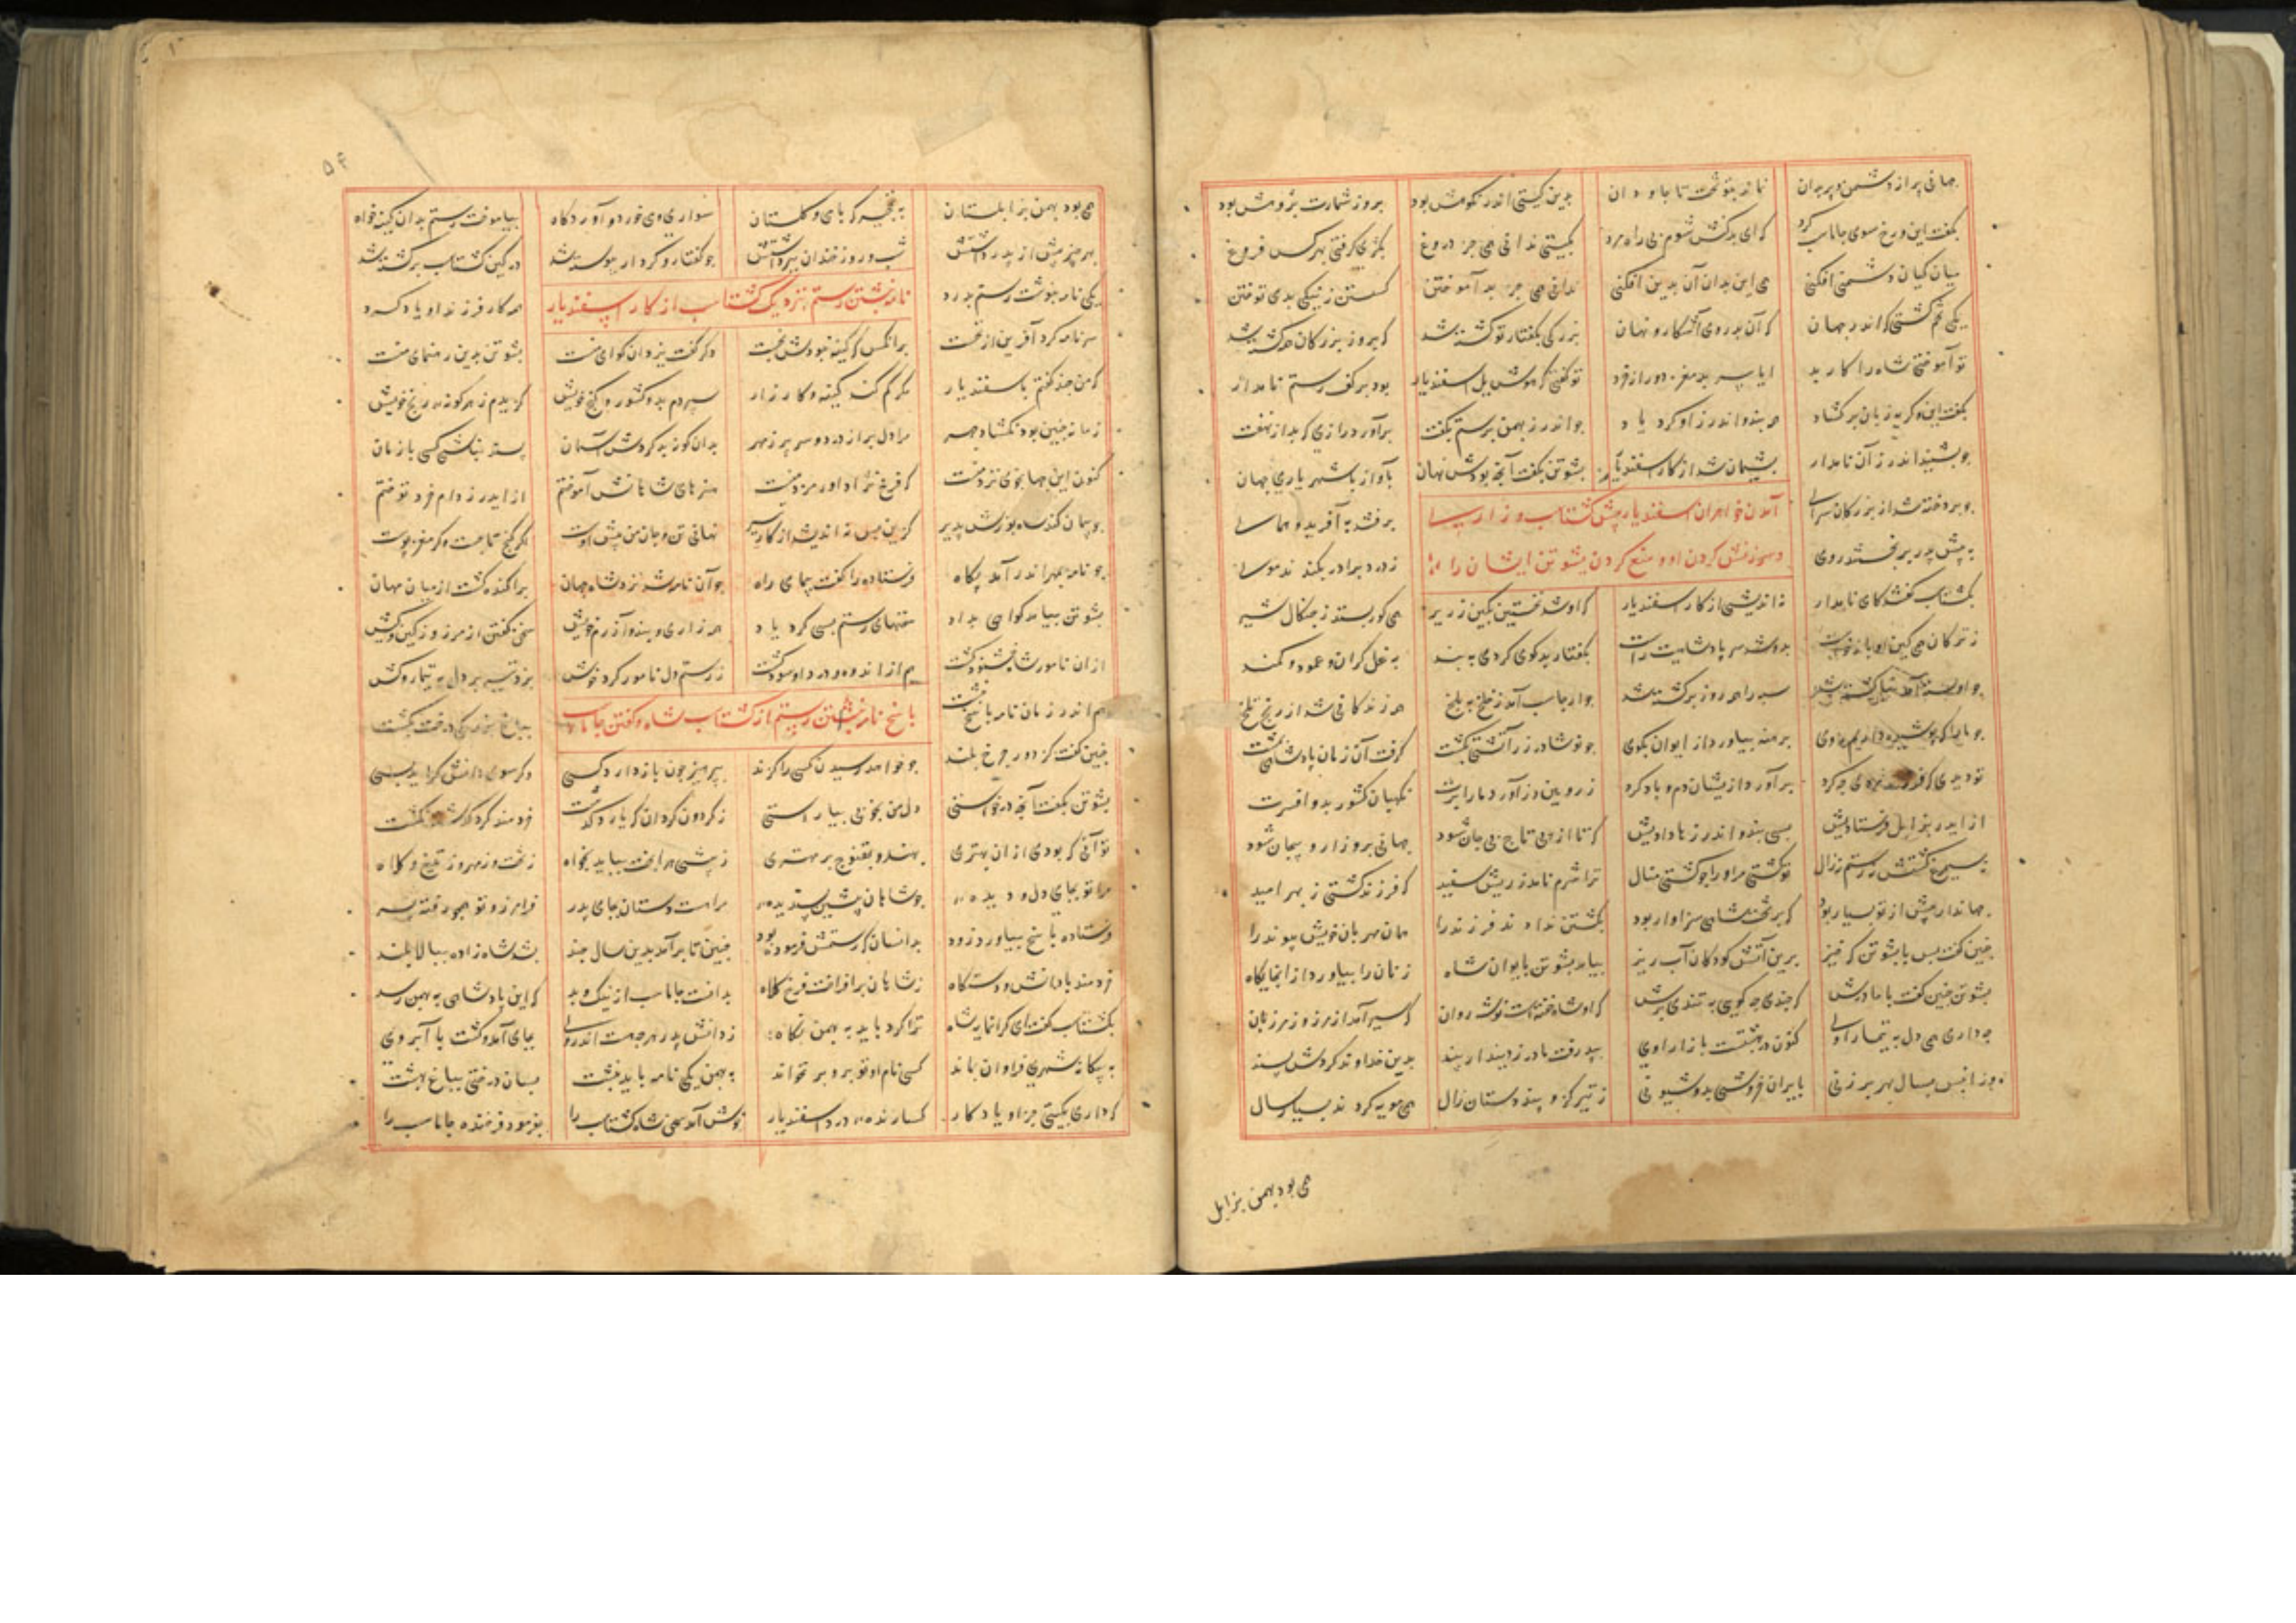 جهانی پر از دشمن و پر بدان نماند بتو تخت تا جاودان بدین گیتی اندر نکوهش بود بروز شمارت پژوهش بود
بگفت این و رخ سوی جاماسب کرد که ای بدکنش شوم بی راه مرد بگیتی ندانی همی جز دروغ بکژی گرفتی ز هرکس فروغ
میان کیان دشمنی افکنی همی این بدان آن بدین افکنی ندانی همی جز بد آموختن گسستن ز نیکی بدی توختن
یکی تخم کشتی که اندر جهان که آن بدروی آشکار و نهان بزرگی بگفتار تو کشته شد که روز بزرگان همه گشته شد
تو آموختی شاه را کار بد ایا پیر بد مغز دور از خرد تو گفتی که هوش یل اسفندیار بود بر کف رستم نامدار
بگفت این و گریه زبان برگشاد همه پند و اندرز او کرد یاد چو اندرز بهمن برستم بگفت برآورد رازی که بد از نهفت
چو بشنید اندرز آن نامدار پشیمان شد از کار اسفندیار پشوتن بگفت آنچه بودش نهان بآواز با شهریار جهان
چو پردخته شد از بزرگان سرای
آمدن خواهران اسفندیار پیش گشتاسب و زاری
برفتند به آفرید و همای
به پیش پدر بر بخستند روی
و سرزنش کردن او و منع کردن پشوتن ایشان را
ز درد برادر بکندند موی
بگشتاسب گفتند کای نامدار نه اندیشی از کار اسفندیار که او شد نخستین بکین زریر همی گور بستد ز چنگال شیر
ز ترکان همی کین او بازخواست بدو شد سر پادشاهیت راست بگفتار بدگوی کردی به بند به غل گران و عمود و کمند
چو او بسته آمد نیا کشته شد سپه را همه روز برگشته شد چو ارجاسب آمد ز خلخ به بلخ همه زندگانی شد از رنج تلخ
چو ما را که پوشیده داریم روی برهنه بیاورد از ایوان بکوی چو نوشآذر زرآتشتی بکشت گرفت آن زمان پادشاهی بمشت
تو دیدی که فرزند مردی چه کرد برآورد ازیشان دم و باد کرد ز رویین دژ آورد ما را برت نگهبان کشور بد و افسرت
از ایدر بزابل فرستادیش بسی پند و اندرزها دادیش که تا از پی تاج بیجان شود جهانی برو زار و پیچان شود
نه سیمرغ کشتش نه رستم نه زال تو کشتی مر او را چو کشتی منال ترا شرم نامد ز ریش سفید که فرزند کشتی ز بهر امید
جهاندار پیش از تو بسیار بود که بر تخت شاهی سزاوار بود بکشتن نداد ند فرزند را همان مهربان خویش پیوند را
چنین گفت پس با پشوتن که خیز برین آتش کودکان آب ریز بیامد پشوتن بایوان شاه زنان را بیاورد از آنجایگاه
پشوتن چنین گفت با مادرش که چندی چه کوبی به تندی برش که او شاد خفته است نوشه روان که سیر آمد از مرز و از مرزبان
چه داری همی دل به تیمار اوی کنون در بهشتست بازار اوی بپذرفت مادر ز دیندار پند بدین خداوند کردش پسند
وزان پس بسال بهر برزنی بایران خروشی بد و شیونی ز تیر گز و بند دستان زال همی مویه کردند بسیار سال
همی بود بهمن بزابل
۵۴
همی بود بهمن بزابلستان به نخجیر که با می و گلستان سواری و می خوردن و آوردگاه بیاموخت رستم بدان کینه خواه
بهر چیز پیش از پسر داشتش شب و روز خندان ببر داشتش چو گفتار و کردار پیوسته شد در کین گشتاسب بر بسته شد
یکی نامه بنوشت رستم بدرد
نامه نبشتن رستم بنزدیک گشتاسب از کار اسفندیار
همه کار فرزند او یاد کرد
سر نامه کرد آفرین از نخست بر آنکس که کینه نبودش نجست دگر گفت یزدان گوای منست پشوتن بدین رهنمای منست
که من چند گفتم باسفندیار مگر کم کند کینه و کارزار سپردم بدو کشور و گنج خویش گزیدم ز هر گونه رنج خویش
زمانه چنین بود نگشاد چهر مرا دل پر از درد و سر پر ز مهر بدان گونه بد گردش آسمان پسنده نباشد کسی با زمان
کنون این جهانجوی نزد منست که فرخ نژاد اورمزد منست هنرهای شاهانش آموختم از اندرز وام خرد توختم
چو پیمان کند شاه پوزش پذیر کزین پس نه اندیشد از کار تیر نهانی تن و جان من پیش اوست اگر گنج تاجست و گر مغز و پوست
چو نامه بمهر اندر آمد پگاه فرستاده را گفت بپمای راه چو آن نامه شد نزد شاه جهان پراکنده گشت از میان مهان
پشوتن بیامد گواهی بداد سخنهای رستم بسی کرد یاد همه زاری و پند و آزرم خویش سخن گفتن از مرز و از کین و کیش
ازان نامور شاه خشنود گشت هم از اندوه و درد او سود گشت ز رستم دل نامور کرد خوش نزد تیر بر دل به تیمار و کش
هم اندر زمان نامه پاسخ نبشت
پاسخ نامه نبشتن رستم از گشتاسب شاه و گفتن جاماسب
بباغ بزرگی درختی بکشت
چنین گفت کز دور چرخ بلند چو خواهد رسیدن کسی را گزند بپرهیز چون باز دارد کسی وگر سوی دانش گراید بسی
پشوتن بگفت آنچه درخواستی دل من بخوبی بیاراستی ز گردون گردان که یارد گذشت خردمند گرد گذشته نگشت
تو آنی که بودی ازان بهتری بهند و بقنوج بر مهتری ز بیشی هر آنچت بباید بخواه ز تخت و ز مهر و ز تیغ و کلاه
فرستاده پاسخ بیاورد زود بدانسان که رستمش فرموده بود چنین تا برآمد بدین سال چند بشد شاه زاده ببالا بلند
خردمند با دانش و دستگاه ز شاهان برافراخت فرخ کلاه بدانست جاماسب از نیک و بد که این پادشاهی به بهمن رسد
بگشتاسب گفت ای گرانمایه شاه ترا کرد باید به بهمن نگاه ز دانش پدر هرچه جست اندروی بجای آمد و گشت با آبروی
به بیگانه شهری فراوان بماند کسی نام او تو برو بر نخواند به بهمن یکی نامه باید نبشت بسان درختی بباغ بهشت
که داری بگیتی جز او یادگار گسارنده درد اسفندیار خوش آمد همی شاه گشتاسب را بفرمود فرخنده جاماسب را